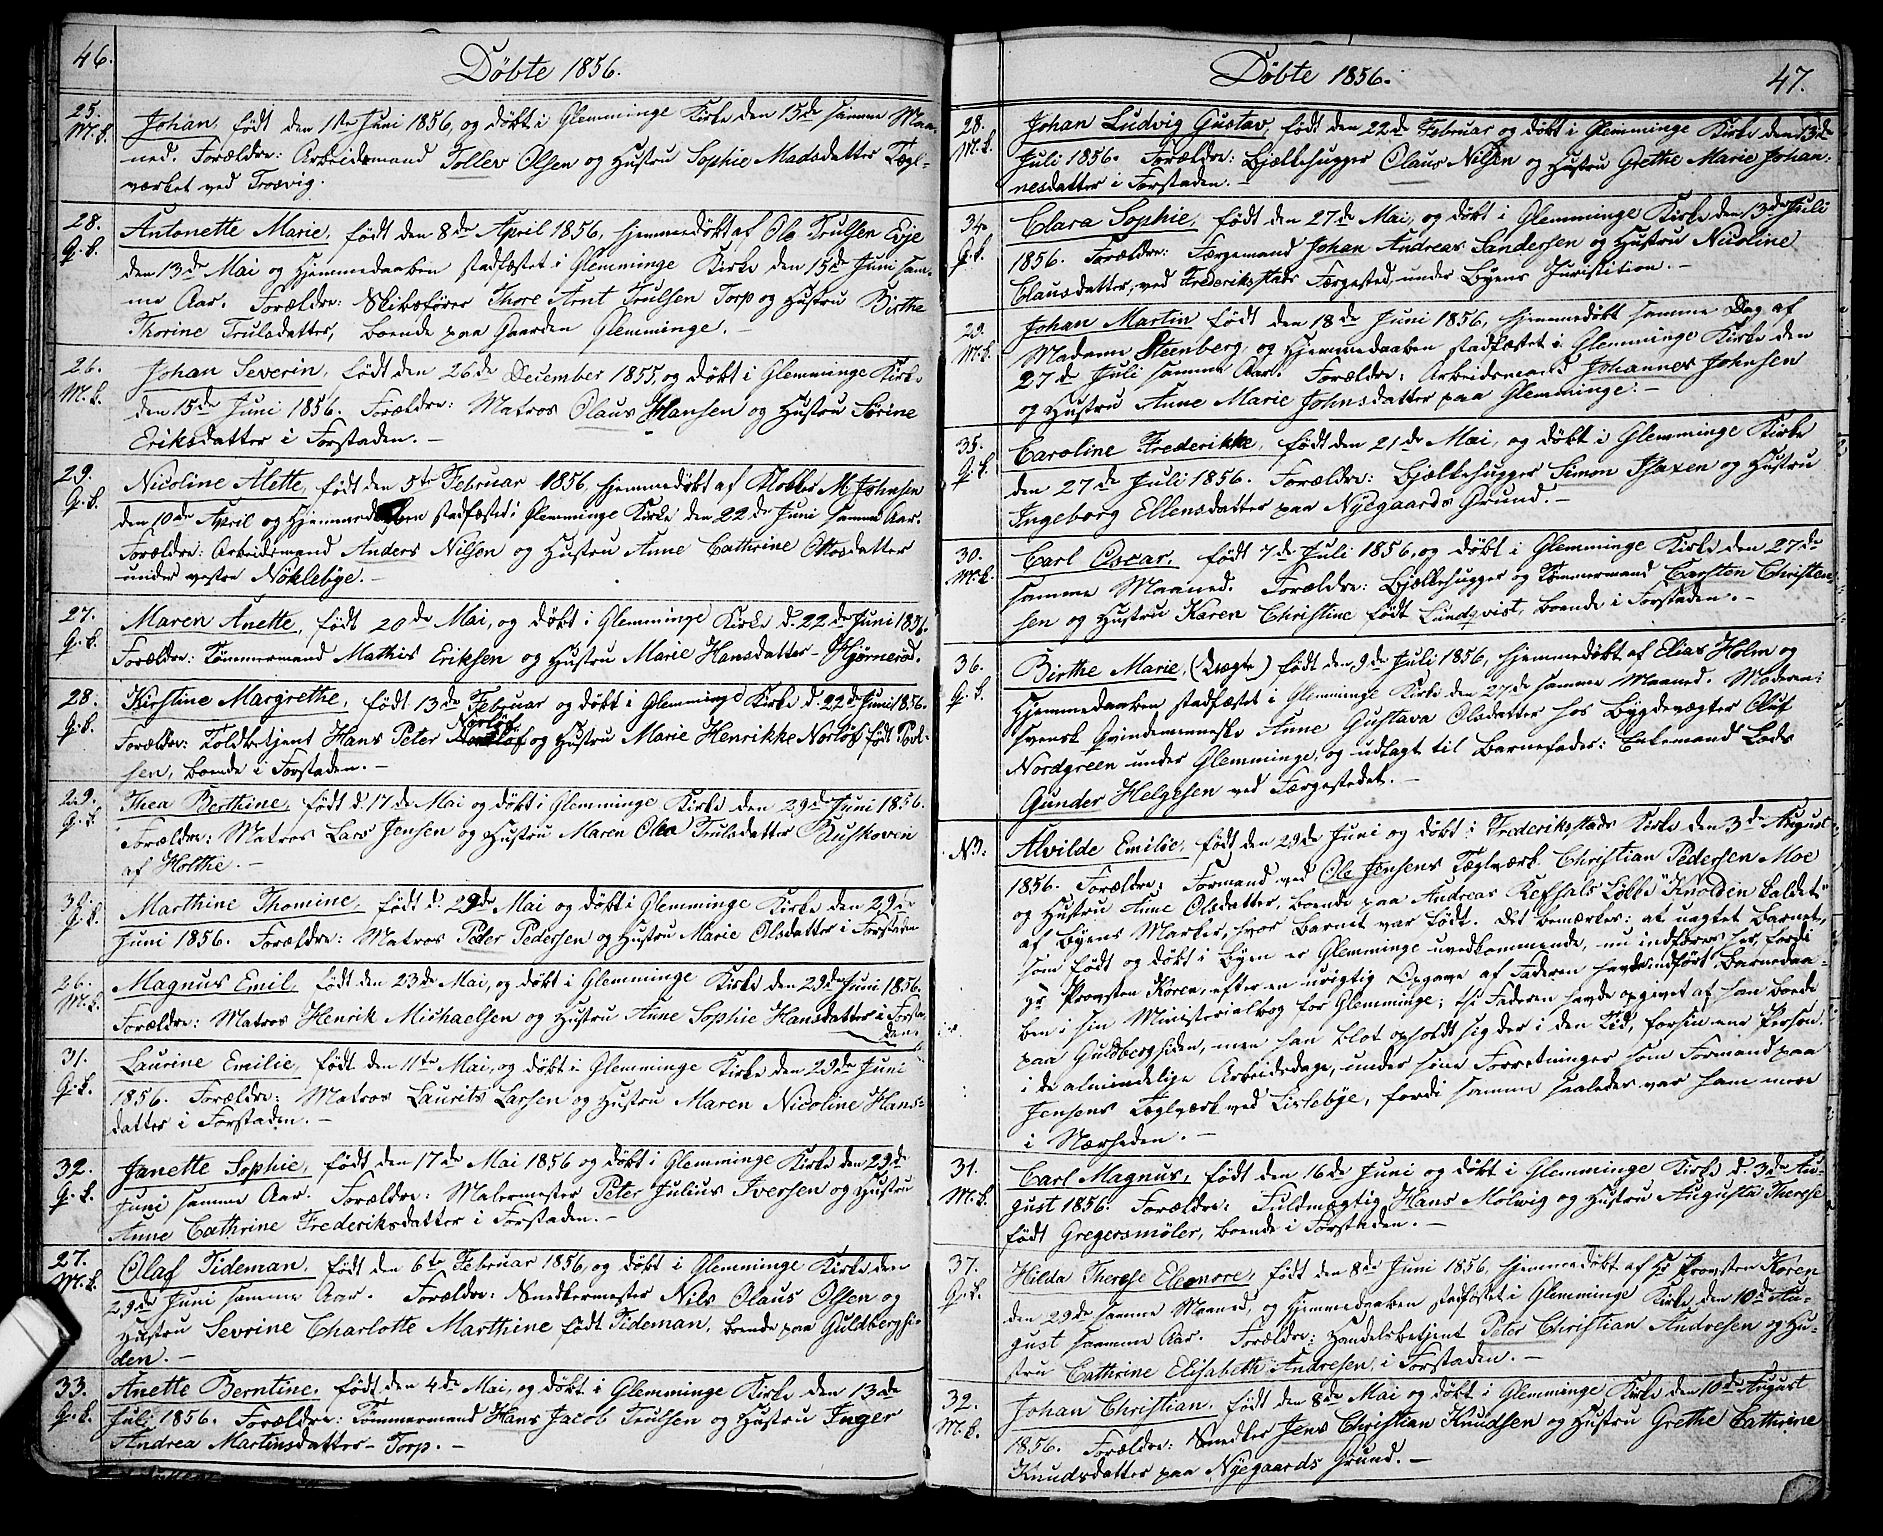 46.
Döbte 1856.
25. M.k. Johan, født den 1ste Juni 1856, og døbt i Glemminge Kirke den 15de samme Maa-
ned. Forældre: Arbeidsmand Tollev Olsen og Hustru Sophie Madsdatter Tægl-
værket ved Trosvig.
28. G.k. Antonette Marie, født den 8de April 1856, hjemmedøbt af Ole Trulsen Evje
den 13de Mai og Hjemmedaaben stadfæstet i Glemminge Kirke den 15de Juni sam-
me Aar. Forældre: Skibsfører Thore Arnt Trulsen Torp og Hustru Birthe
Thorine Trulsdatter, boende paa Gaarden Glemminge. –
26. M.k. Johan Severin, født den 26de December 1855, og døbt i Glemminge Kirke
den 15de Juni 1856. Forældre: Matros Claus Hansen og Hustru Sørine
Eriksdatter i Forstaden. –
29. G.k. Nicoline Alette, født den 5te Februar 1856, hjemmedøbt af Klokker M. Johnsen
den 10de April og Hjemmedaaben stadfæstet i Glemminge Kirke den 22de Juni samme Aar.
Forældre: Arbeidsmand Anders Nilsen og Hustru Anne Cathrine Ottosdatter
under vestre Nöklebye. –
27. G.k. Maren Anette, født 20de Mai, og døbt i Glemminge Kirke d. 22de Juni 1856.
Forældre: Tømmermand Mathis Eriksen og Hustru Marie Hansdatter – Hjørnerød.
28. G.k. Kirstine Margrethe, født 13de Februar og døbt i Glemminge Kirke d. 22de Juni 1856.
Forældre: Toldbetjent Hans Peter Norløf og Hustru Marie Henrikke Norløf født Poul-
sen, boende i Forstaden. –
29. G.k. Thea Berthine, født d. 17de Mai og døbt i Glemminge Kirke den 29de Juni 1856.
Forældre: Matros Lars Jensen og Hustru Maren Olea Trulsdatter Buskoven
af Holthe. –
30. G.k. Marthine Thomine, født d. 29de Mai og døbt i Glemminge Kirke den 29de
Juni 1856. Forældre: Matros Peter Pedersen og Hustru Marie Olsdatter i Forstaden
26. M.k. Magnus Emil, født den 23de Mai, og døbt i Glemminge Kirke den 29de Juni 1856.
Forældre: Matros Henrik Michaelsen og Hustru Anne Sophie Hansdatter i Forsta-
den.
31. G.k. Laurine Emilie, født den 11te Mai, og døbt i Glemminge Kirke den 29de Juni
1856. Forældre: Matros Laurits Larsen og Hustru Maren Nicoline Hans-
datter i Forstaden. –
32. G.k. Janette Sophie, født den 17de Mai 1856 og døbt i Glemminge Kirke den 29de
Juni samme Aar. Forældre: Malermester Peter Julius Iversen og Hustru
Anne Cathrine Frederiksdatter i Forstaden. –
27. M.k. Olaf Tideman, født den 6te Februar 1856, og døbt i Glemminge Kirke den
29de Juni samme Aar. Forældre: Snedkermester Nils Olaus Olsen og
Hustru Sevrine Charlotte Marthine født Tideman, boende paa Guldbergsi-
den. –
33. G.k. Anette Berntine, født den 4de Mai, og døbt i Glemminge Kirke den 13de
Juli 1856. Forældre: Tømmermand Hans Jacob Trulsen og Hustru Inger
Andrea Martinsdatter – Torp. –
Döbte 1856.
47.
28. M.k. Johan Ludvig Gustav, født den 22de Februar og døbt i Glemminge Kirke den 13de
Juli 1856. Forældre: Bjælkehugger Claus Nilsen og Hustru Grethe Marie Johan-
nesdatter i Forstaden. –
34. G.k. Clara Sophie, født den 27de Mai, og døbt i Glemminge Kirke den 13de Juli
1856. Forældre: Færgemand Johan Andreas Sandersen og Hustru Nicoline
Clausdatter, ved Frederikstads Færgested, under Byens Juristition. –
29. M.k. Johan Martin født den 18de Juni 1856, hjemmedøbt samme Dag af
Madame Steenberg, og Hjemmedaaben stadfæstet i Glemminge Kirke den
27de Juli samme Aar. Forældre: Arbeidsmand Johannes Johnsen
og Hustru Anne Marie Johnsdatter paa Glemminge. –
35. G.k. Caroline Frederikke, født den 21de Mai, og døbt i Glemminge Kirke
den 27de Juli 1856. Forældre: Bjælkehugger Simon Isaxen og Hustru
Ingeborg Ellensdatter paa Nyegaards Grund. –
30. M.k. Carl Oscar, født 7de Juli 1856, og døbt i Glemminge Kirke den 27de
samme Maaned. Forældre: Bjælkehugger og Tømmermand Carsten Christen-
sen og Hustru Karen Christine født Lundqvist, boende i Forstaden. –
36. G.k. Birthe Marie, (Uægte) født den 9de Juli 1856, hjemmedøbt af Elias Holm og
Hjemmedaaben stadfæstet i Glemminge Kirke den 27de samme Maaned. Moderen:
svensk Qvindemenneske Anne Gustava Olsdatter hos Bygdevægter Oluf
Nordgreen under Glemminge, og udlagt til Barnefader: Enkemand Lods
Gunder Helgesen ved Færgestedet. –
NB: Alvilde Emilie, født den 29de Juni og døbt i Frederikstads Kirke den 3de August
1856. Forældre: Formand ved Ole Jensens Tæglværk Christian Pedersen Moe
og Hustru Anne Olsdatter, boende paa Andreas Refsals Løkke "Knolden kaldet"
af Byens Marker, hvor Barnet var født. Det bemærkes: at uagtet Barnet,
som født og døbt i Byen er Glemminge uvedkommende, nu indføres her, fordi
Hr. Provsten Koren, efter en urigtig Opgave af Faderen havde indført Barnedaa-
ben i sin Ministerialbog for Glemminge; thi Faderen havde opgivet at han boede
paa Guldbergsiden, men han blot opholdt sig der i den Tid, forsin ene Person
i de almindelige Arbeidsdage, under sine Forretninger som Formand paa
Jensens Tæglværk ved Lislebye, fordi samme saaledes var ham mere
i Nærheden. –
31. M.k. Carl Magnus, født den 16de Juni og døbt i Glemminge Kirke d. 3de Au-
gust 1856. Forældre: Fuldmægtig Hans Molvig og Hustru Augusta Therese
født Gregersmøler, boende i Forstaden. –
37. G.k. Hilda Therese Eleonore, født den 8de Juni 1856, hjemmedøbt af Hr. Provsten Koren
den 29de samme Maaned, og Hjemmedaaben stadfæstet i Glemminge Kirke den 10de Au-
gust samme Aar. Forældre: Handelsbetjent Peter Christian Andresen og Hu-
stru Cathrine Elisabeth Andresen, i Forstaden. –
32. M.k. Johan Christian, født den 8de Mai og døbt i Glemminge Kirke den 10de August
1856. Forældre: Snedker Jens Christian Knudsen og Hustru Grethe Cathrine
Knudsdatter paa Nyegaards Grund. –